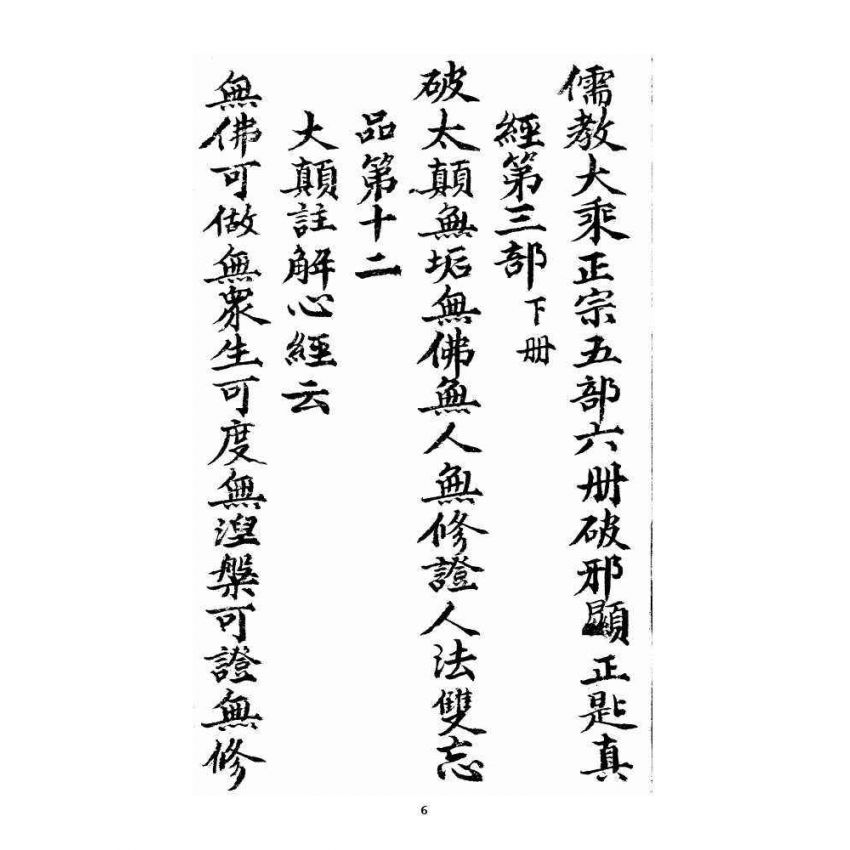 儒教大乘正宗五部六册破邪顯正匙真
經第三部下册
破太顛無垢無佛無人無修證人法雙忘
品第十二
大顛註解心經云
無佛可做無眾生可度無湼槃可證無修
6